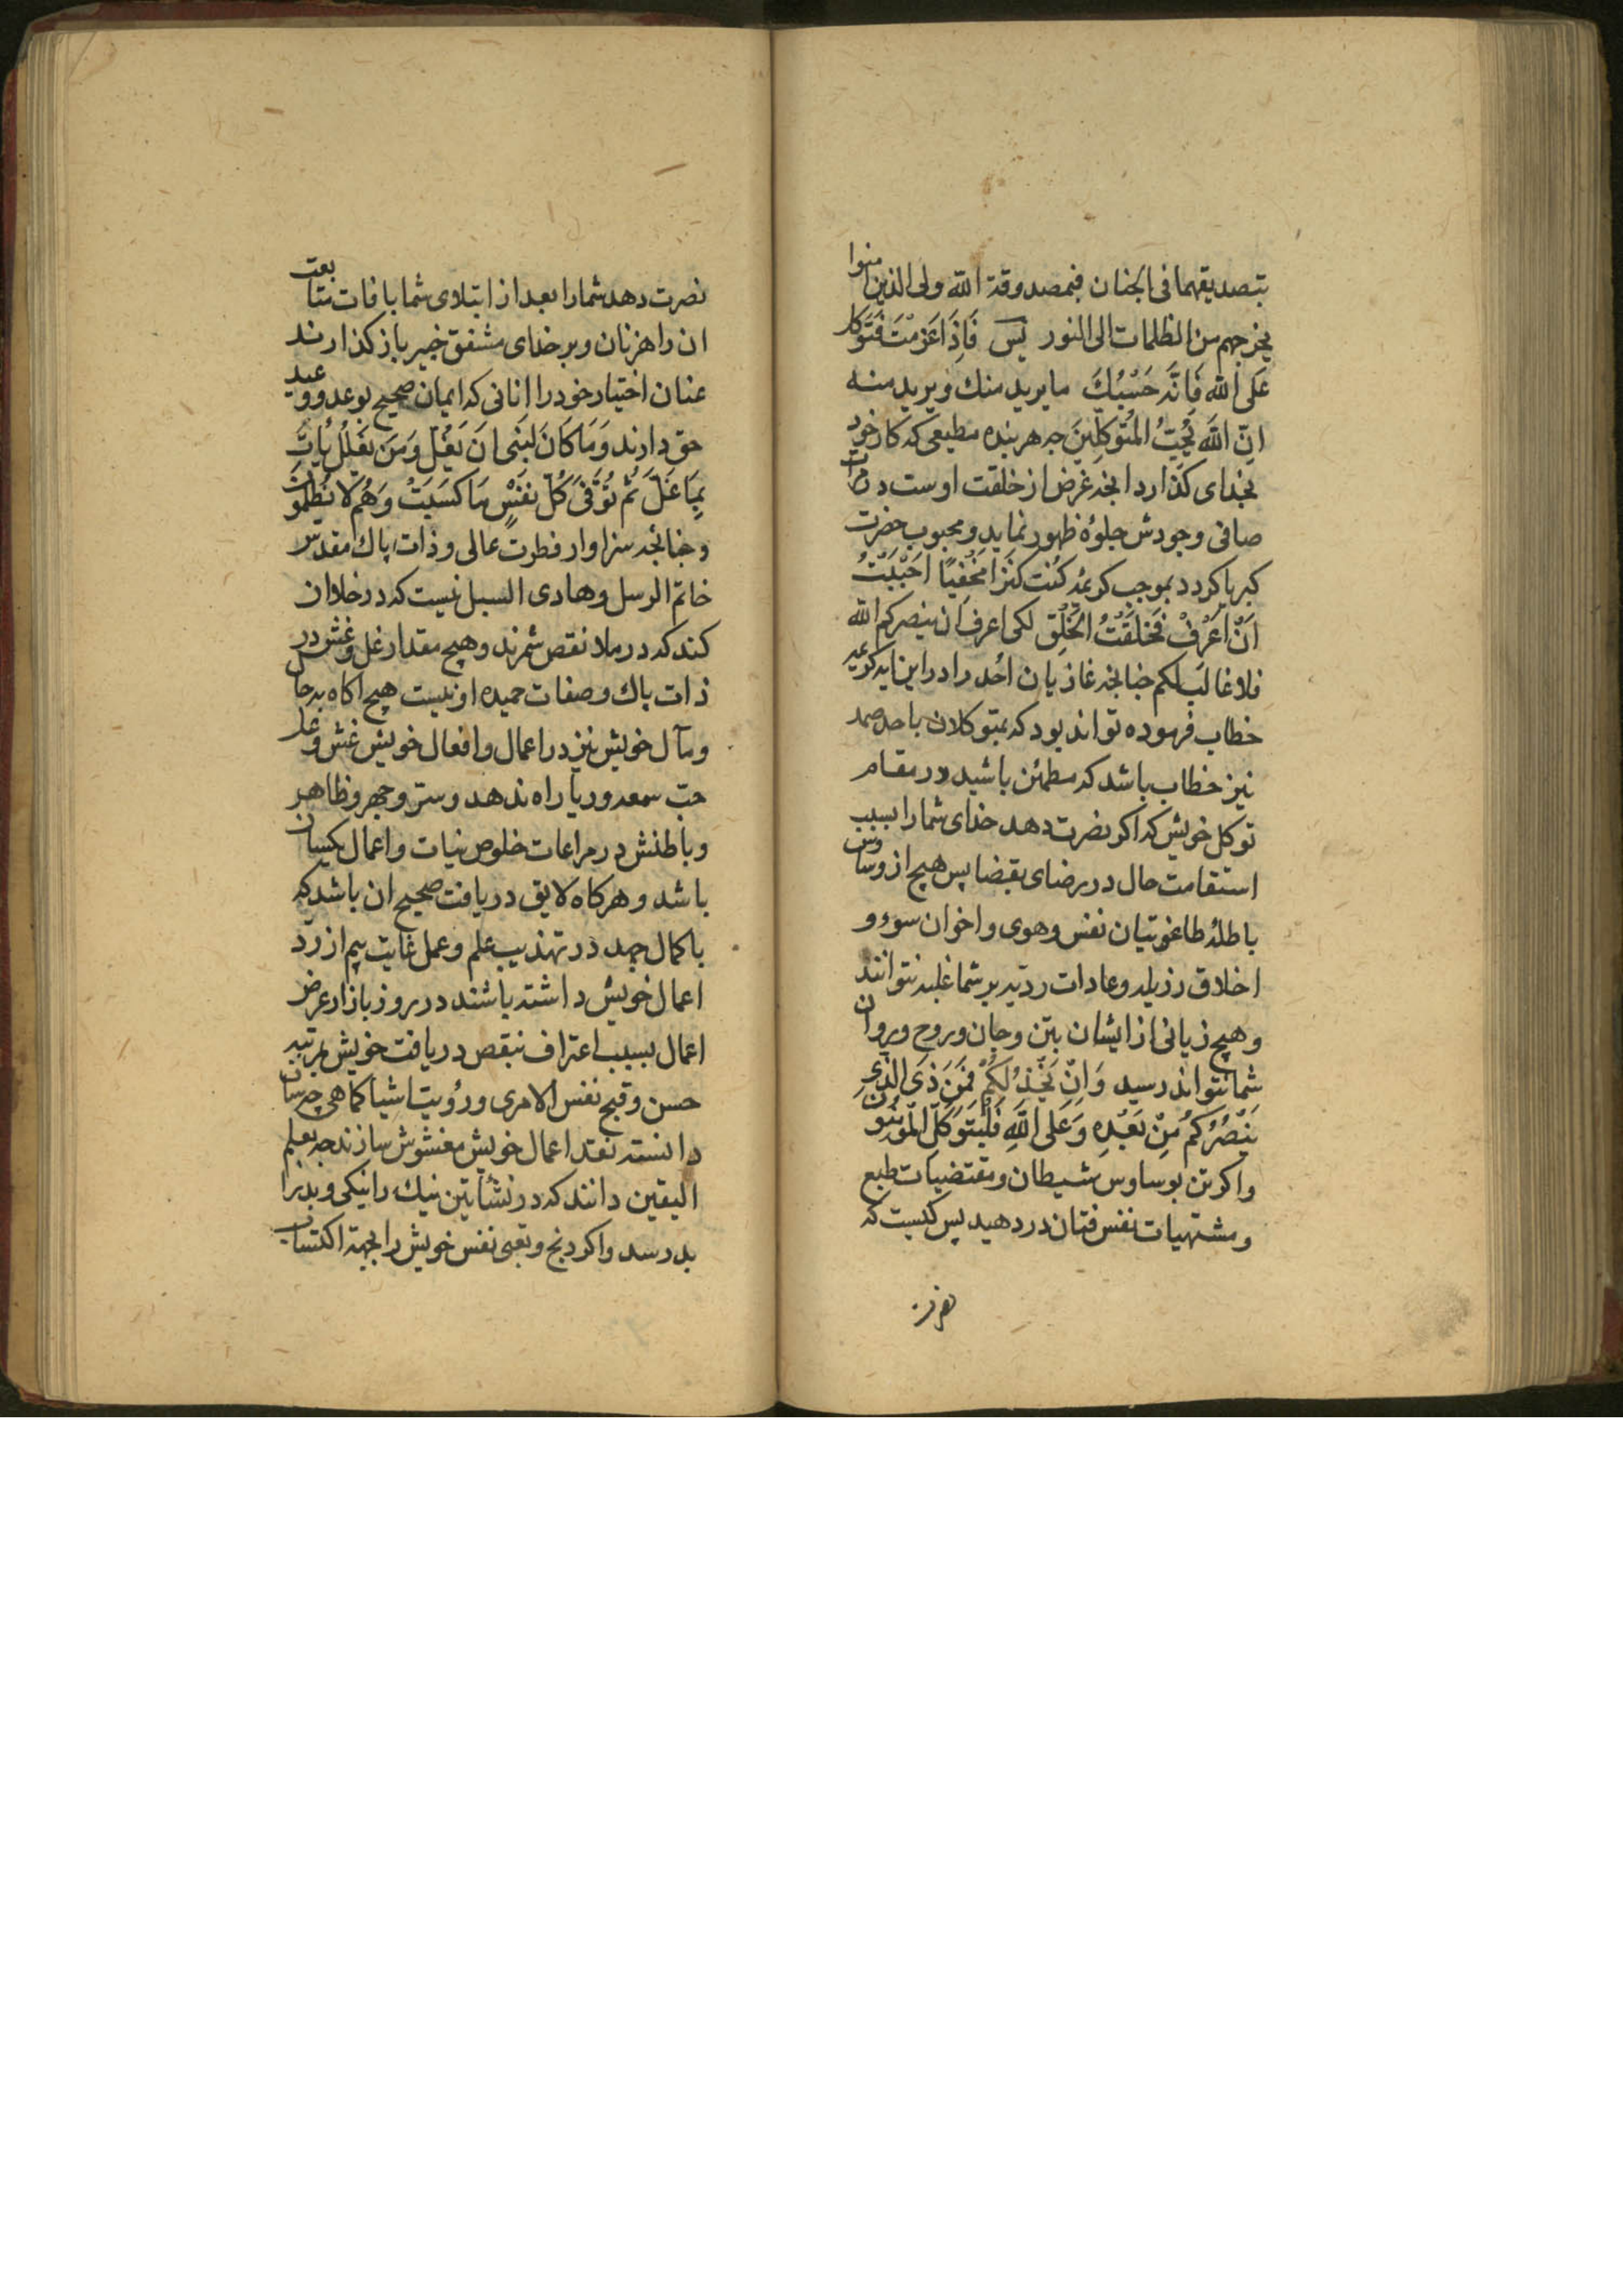 بتصدیقهما فی الجنان فبمصدوقة الله ولی الذین امنوا
یخرجهم من الظلمات الی النور پس فَاِذَا عَزَمْتَ فَتَوَكل
عَلَی الله فَاِنَّه حَسْبُكَ ما یرید منك ویرید منه
اِنّ اللهَ یُحِبُّ المُتَوَكلِّینَ چه هر بنده مطیعی که کار خود
بخدای کذارد انچه غرض از خلقت اوست در مرات
صافی وجودش جلوهٔ ظهور نماید و محبوب حضرت
کبریا کردد بموجب کریمهٔ کُنت کَنْزًا مَخْفِیًا اَحْبَبْتُ
اَنْ اُعْرَفْ فَخَلَقْتُ الْخَلْقَ لکی اعرف ان ینصرکم الله
فلا غالب لکم چنانچه غازیان احد را در این ایه کریمه
خطاب فرموده تواند بود که بمتوکلان باحد صمد
نیز خطاب باشد که مطمئن باشید در مقام
توکل خویش که اکر نصرت دهد خدای شما را بسبب
استقامت حال در رضای بقضا پس هیچ از وساوس
باطلهٔ طاغوتیان نفس وهوی و اخوان سوء و
اخلاق رذیله وعادات ردیه بر شما غلبه نتوانند
و هیچ زیانی از ایشان بتن وجان وروح وروان
شما نتواند رسید وَاِنْ یَخْذُلْكُمْ فَمَنْ ذَی الَّذِی
یَنْصُرُكُمْ مِنْ بَعْدِهِ وَعَلَی اللَّهِ فَلْیَتَوَكَّلِ الْمُؤمِنُونَ
واکر تن بوساوس شیطان ومقتضیات طبع
ومشتهیات نفس فتان در دهید پس کیست که
نصرت دهد شما را بعد از ابتلای شما بافات متابعت
ان راهزنان وبر خدای مشفق خبیر باز کذارند
عنان اختیار خود را انانی که ایمان صحیح بوعد ووعید
حق دارند وَمَا كَانَ لِنَبِی اَنْ یَغُلَّ وَمَنْ یَغْلُلْ یَأتِ
بِمَا غَلَّ ثُمَّ تُوَفَّی كُلُّ نَفْسٍ مَا كَسَبَتْ وَهُمْ لَا یُظْلَمُونَ
وچنانچه سزاوار فطرت عالی وذات پاك مقدس
خاتم الرسل وهادی السبل نیست که در خلا ان
کند که در ملا نقص شمرند وهیچ مقدار غل وغش در
ذات پاك وصفات حمیده او نیست هیچ اکاه بر حال
ومآل خویش نیز در اعمال وافعال خویش غش وغل
حب سمعه وریا راه ندهد وستر وجهر وظاهر
وباطنش در مراعات خلوص نیات واعمال یکسان
باشد و هر کاه لایق دریافت صحیح ان باشد که
باکمال جهد در تهذیب علم وعمل غایت بیم از رد
اعمال خویش داشته باشند در روز بازار عرض
اعمال بسبب اعتراف بنقص دریافت خویش بمرتبه
حسن وقبح نفس الامری ورؤیت اشیا کماهی چه سان
دانسته نقد اعمال خویش مغشوش سازند چه بعلم
الیقین دانند که در نشأتین نیك را نیکی وبد را
بد رسد واکر رنج وتعبی نفس خویش را بجهة اکتساب